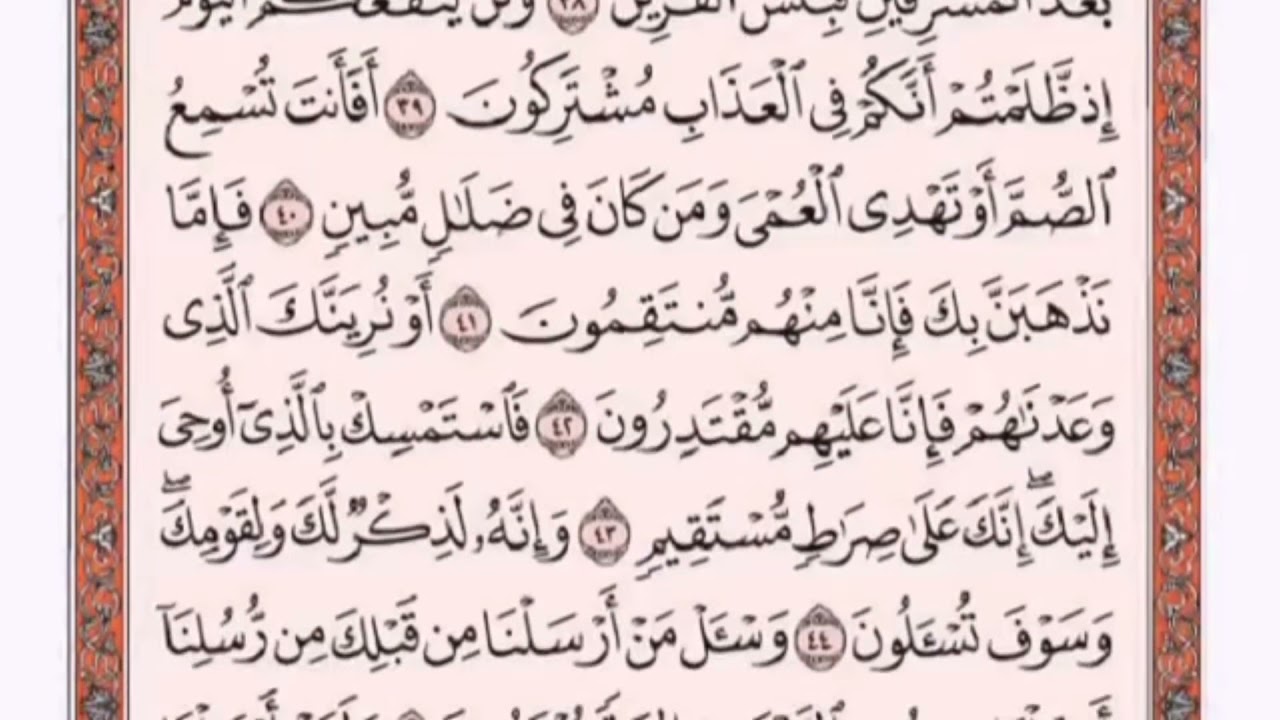 بَعْدَ الْمَشْرِقَيْنِ فَبِئْسَ الْقَرِينُ ٣٨ وَلَن يَنفَعَكُمُ الْيَوْمَ
إِذ ظَّلَمْتُمْ أَنَّكُمْ فِى ٱلْعَذَابِ مُشْتَرِكُونَ ٣٩ أَفَأَنتَ تُسْمِعُ
ٱلصُّمَّ أَوْ تَهْدِى ٱلْعُمْىَ وَمَن كَانَ فِى ضَلَٰلٍ مُّبِينٍ ٤٠ فَإِمَّا
نَذْهَبَنَّ بِكَ فَإِنَّا مِنْهُم مُّنتَقِمُونَ ٤١ أَوْ نُرِيَنَّكَ ٱلَّذِى
وَعَدْنَٰهُمْ فَإِنَّا عَلَيْهِم مُّقْتَدِرُونَ ٤٢ فَٱسْتَمْسِكْ بِٱلَّذِىٓ أُوحِىَ
إِلَيْكَۖ إِنَّكَ عَلَىٰ صِرَٰطٍ مُّسْتَقِيمٍ ٤٣ وَإِنَّهُۥ لَذِكْرٌ لَّكَ وَلِقَوْمِكَۖ
وَسَوْفَ تُسْـَٔلُونَ ٤٤ وَسْـَٔلْ مَنْ أَرْسَلْنَا مِن قَبْلِكَ مِن رُّسُلِنَآ